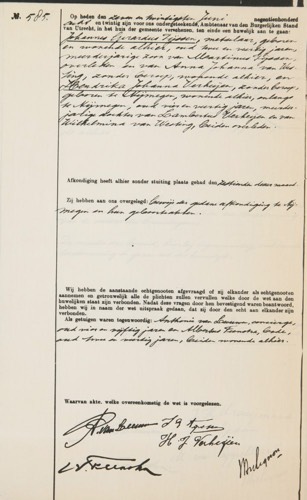 №. 585.
Op heden den zeven en twintigsten Juni negentienhonderd
acht en twintig zijn voor ons ondergeteekende, Ambtenaar van den Burgerlijken Stand
van Utrecht, in het huis der gemeente verschenen, ten einde een huwelijk aan te gaan:
Johannes Gerardus
en wonende alhier, oud twee en veertig jaren,
meerderjarige zoon van Martinus
overleden en van Anna Johanna van
zonder beroep, wonende alhier, en
Hendrika Johanna Verheijen, zonder beroep,
geboren te Nijmegen, wonende alhier, onlangs
te Nijmegen, oud vier en veertig jaren, meerder-
jarige dochter van Lambertus Verheijen en van
Wilhelmina van beiden overleden.
Afkondiging heeft alhier zonder stuiting plaats gehad den zestienden dezer maand.
Zij hebben aan ons overgelegd: bewijs der gedane afkondiging te Nij-
megen en hun geboorteakten.
Wij hebben de aanstaande echtgenooten afgevraagd of zij elkander als echtgenooten
aannemen en getrouwelijk alle de plichten zullen vervullen welke door de wet aan den
huwelijken staat zijn verbonden. Nadat deze vragen door hen bevestigend waren beantwoord,
hebben wij in naam der wet uitspraak gedaan, dat zij door den echt aan elkander zijn
verbonden.
Als getuigen waren tegenwoordig: Anthonie van Leeuwen, concierge,
oud vier en vijftig jaren en Albertus bode,
oud en veertig jaren, beiden wonende alhier.
Waarvan akte, welke overeenkomstig de wet is voorgelezen.
van Leeuwen
H J Verheijen